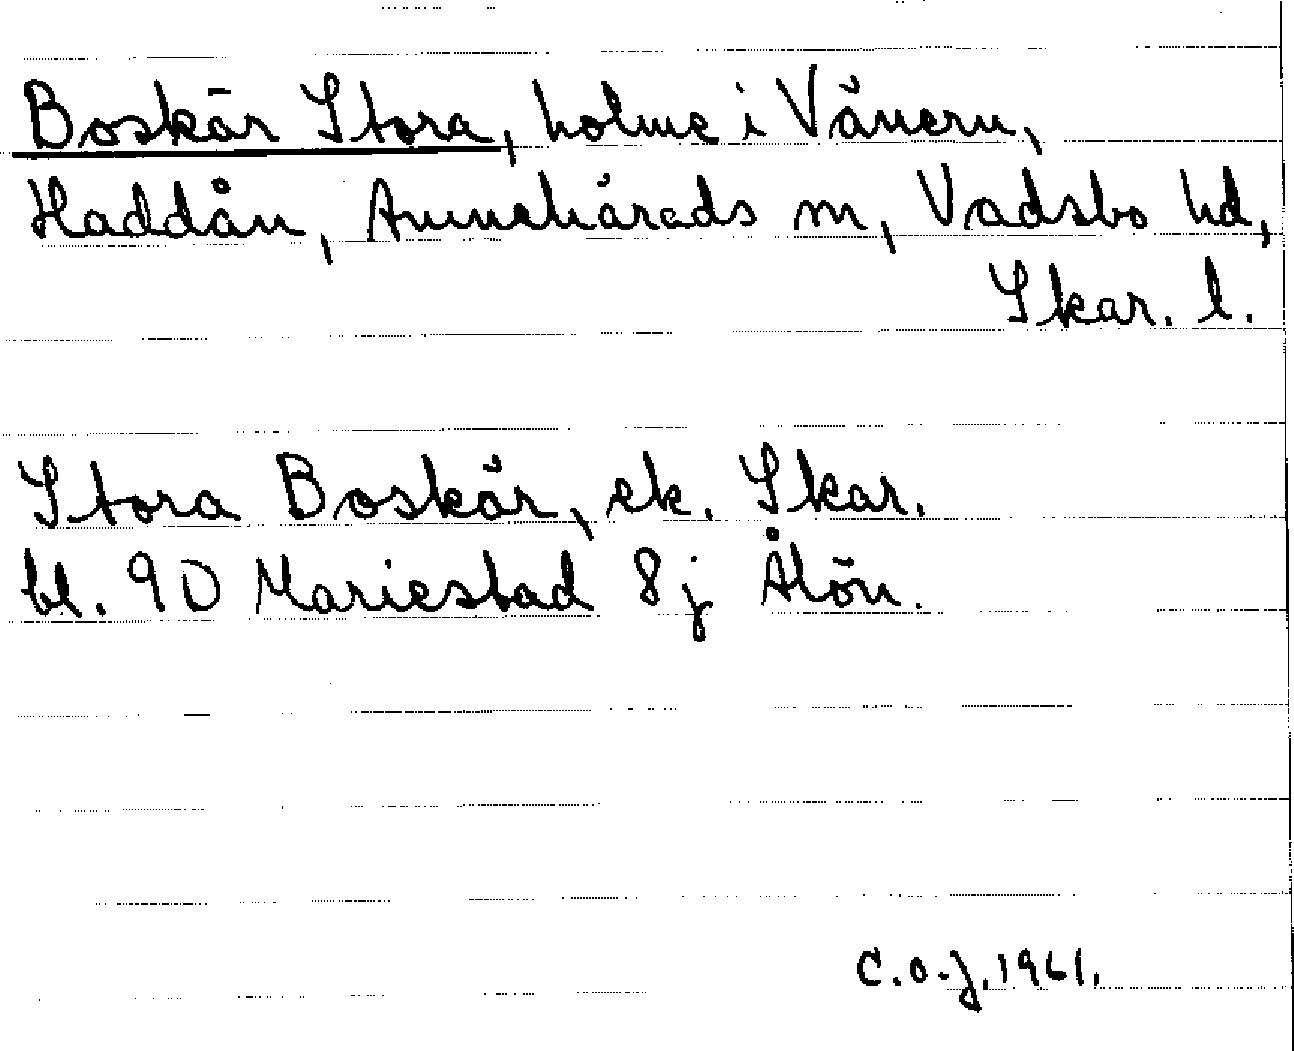 Boskär Stora, holme i Vänern,
Haddån, Amnehärads sn, Vadsbo hd,
Skar. l.
Stora Boskär, ek. Skar.
bl. 9D Mariestad 8j Ålön.
C.O.J. 1961.